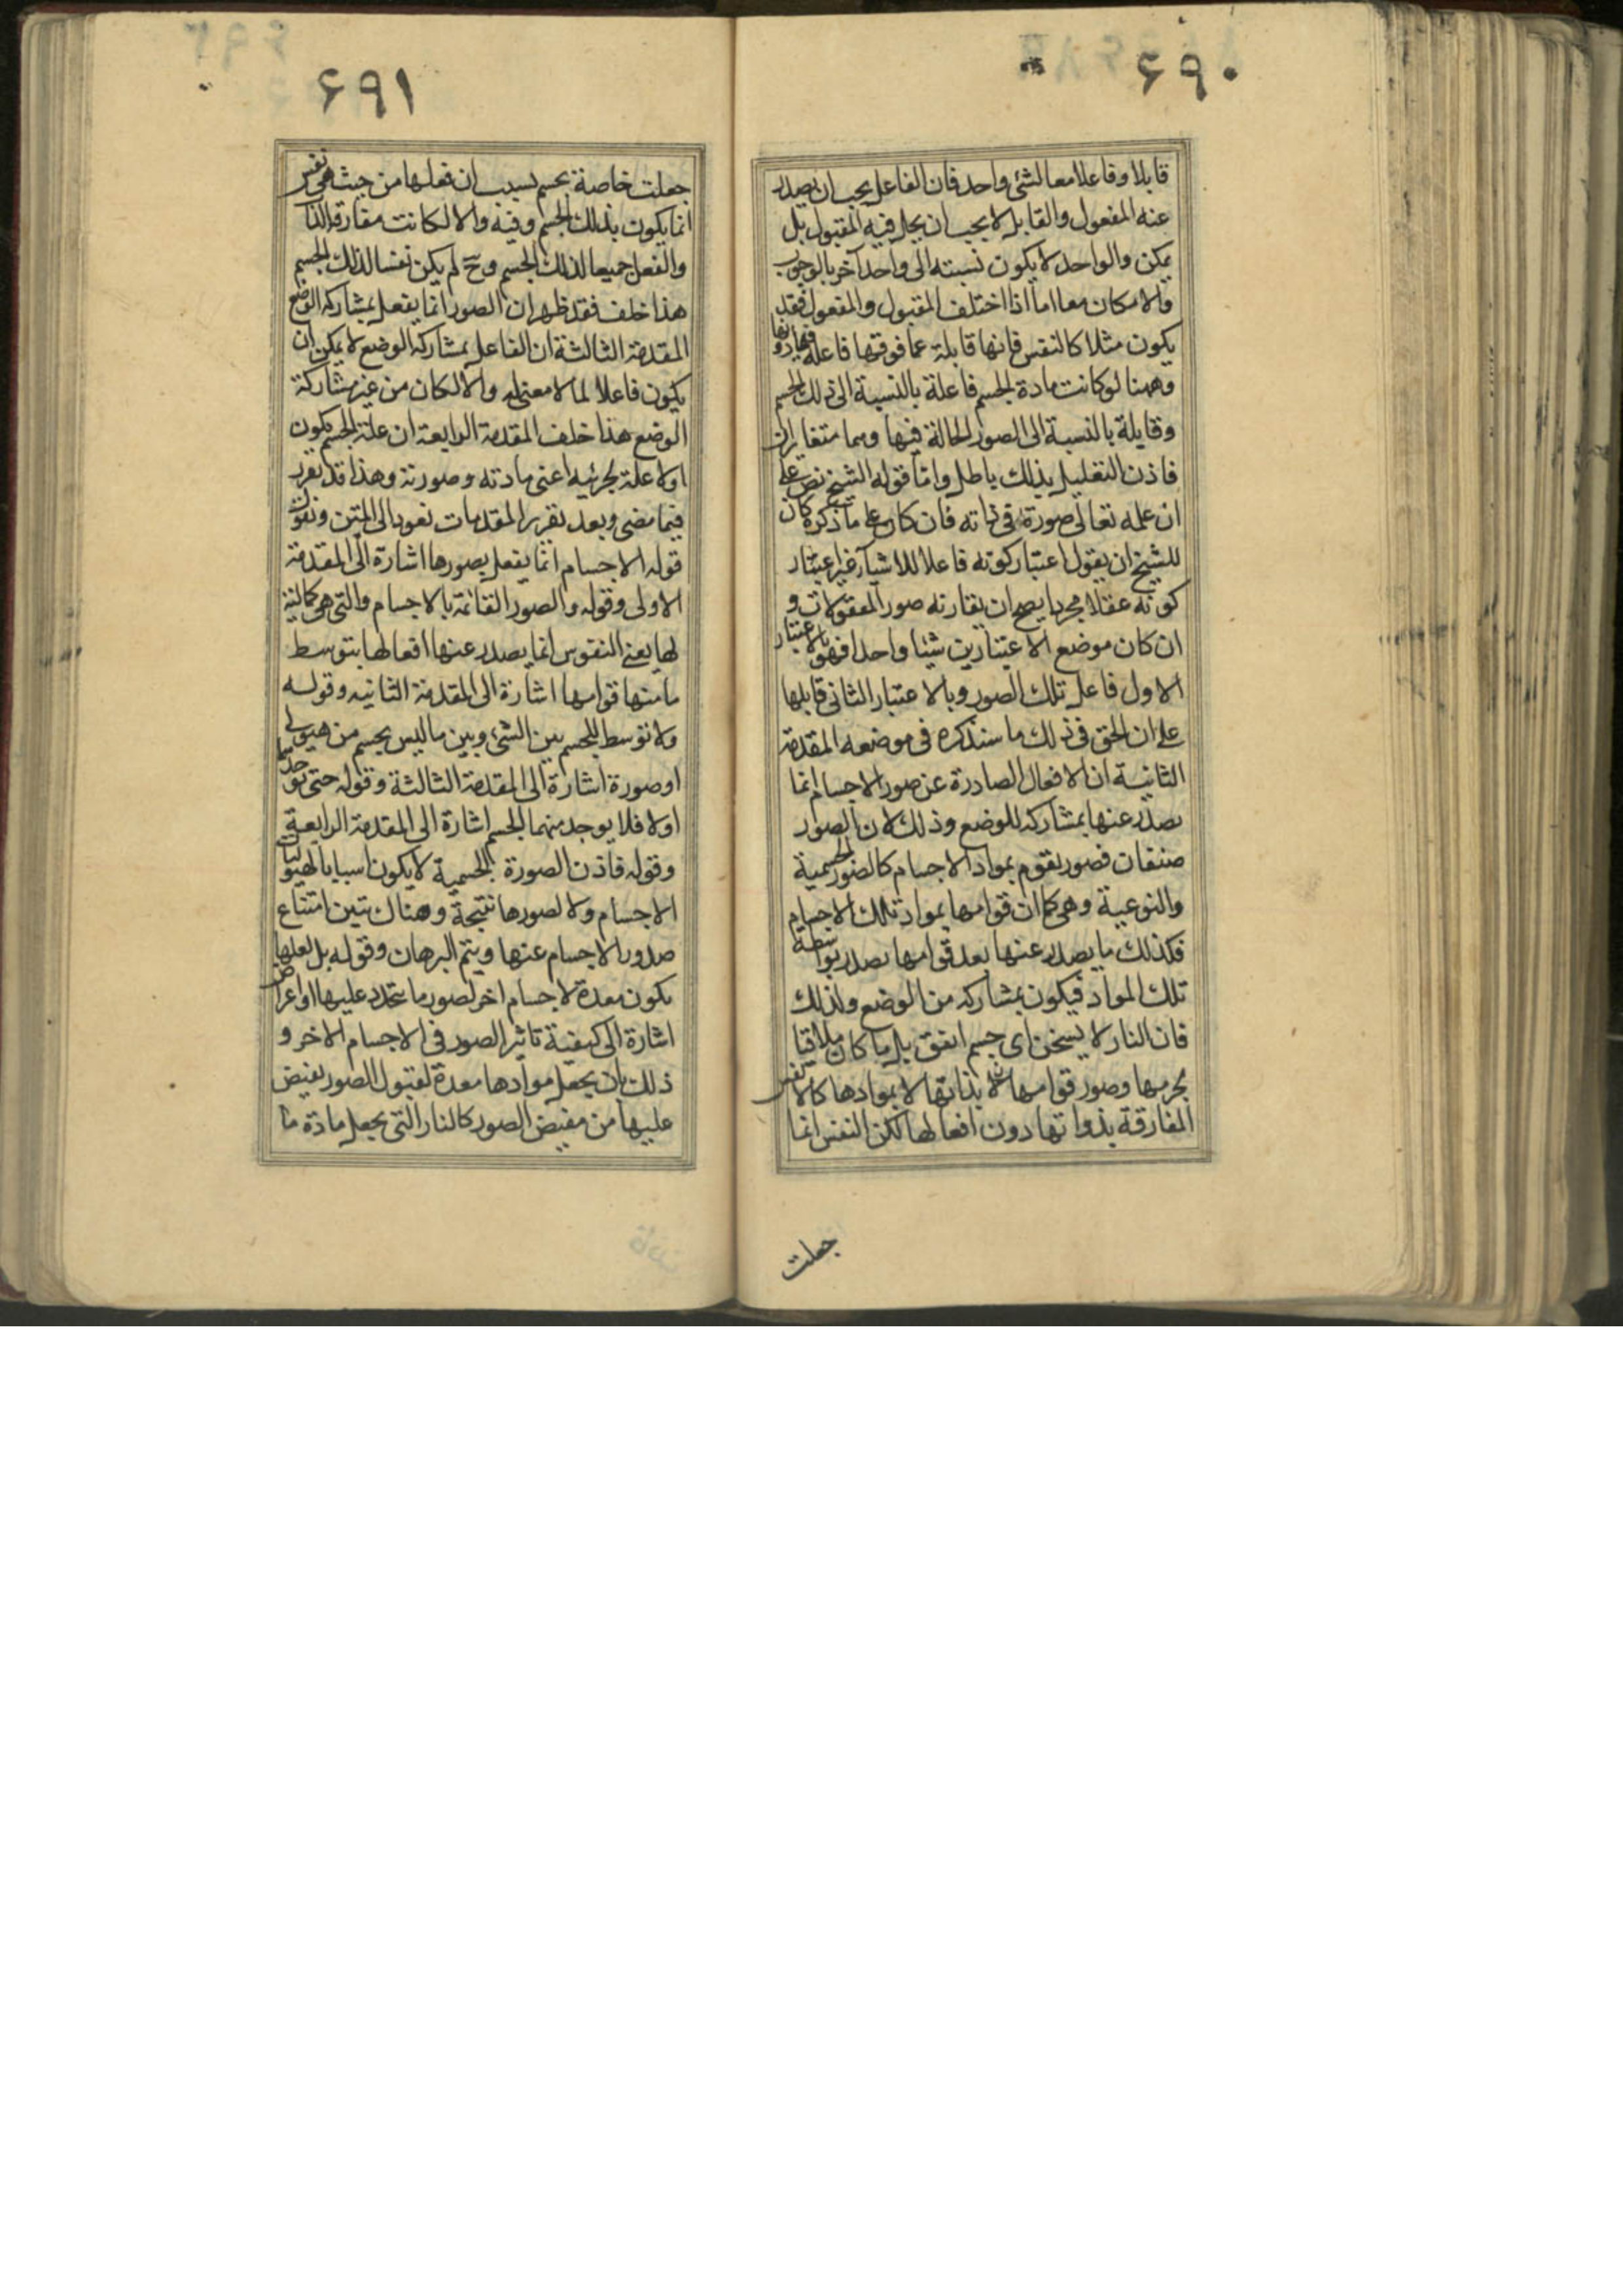 ۶۹۰
قابلا وفاعلا معا لشئ واحد فان الفاعل يجب ان يصدر
عنه المفعول والقابل لا يجب ان يحل فيه المقبول بل
يمكن والواحد لا يكون نسبته الى واحد آخر بالوجوب
والامكان معا اما اذا اختلف المقبول والمفعول فقد
يكون مثلا كالنفس فانها قابلة عما فوقها فاعلة فيما دونها
وههنا لو كانت مادة الجسم فاعلة بالنسبة الى ذلك الجسم
وقابلة بالنسبة الى الصور الحالة فيها وهما متغايران
فاذن التعليل بذلك باطل واما قوله الشيخ نص على
ان علمه تعالى صورة فى ذاته فان كان على ما ذكره كان
للشيخ ان يقول اعتبار كونه فاعلا للاشياء غير اعتبار
كونه عقلا مجردا يصح ان يقارنه صور المعقولات و
ان كان موضع الاعتبارين شيئا واحدا فهو بالاعتبار
الاول فاعل تلك الصور وبالاعتبار الثانى قابلها
على ان الحق فى ذلك ما سنذكره فى موضعه المقدمة
الثانية ان الافعال الصادرة عن صور الاجسام انما
يصدر عنها بمشاركه للوضع وذلك لان الصور
صنفان فصور يقوم بمواد الاجسام كالصور الجسمية
والنوعية وهى كما ان قوامها بمواد تلك الاجسام
فكذلك ما يصدر عنها بعد قوامها يصدر بواسطة
تلك المواد فيكون بمشاركه من الوضع ولذلك
فان النار لا يسخن اى جسم اتفق بل ما كان ملاقيا
بجرمها وصور قوامها بذاتها لا بموادها كالانفس
المفارقة بذواتها دون افعالها لكن النفس انما
جعلت
۶۹۱
جعلت خاصة بجسم بسبب ان فعلها من حيث هى نفس
انما يكون بذلك الجسم وفيه والا لكانت مفارقة الذات
والفعل جميعا لذلك الجسم وح لم يكن نفسا لذلك الجسم
هذا خلف فقد ظهر ان الصور انما يفعل بمشاركه الوضع
المقدمة الثالثة ان الفاعل بمشاركه الوضع لا يمكن ان
يكون فاعلا لما لا معنى له والا لكان من غير مشاركة
الوضع هذا خلف المقدمة الرابعة ان علة الجسم يكون
اولا علة لجزئيه اعنى مادته وصورته وهذا قد تقرر
فيما مضى وبعد تقرير المقدمات نعود الى المتن ونقول
قوله الاجسام انما يفعل بصورها اشارة الى المقدمة
الاولى وقوله والصور القائمة بالاجسام والتى هى كمالية
لها يعنى النفوس انما يصدر عنها افعالها بتوسط
ما منها قوامها اشارة الى المقدمة الثانيه وقوله
ولا توسط للجسم بين الشئ وبين ما ليس بجسم من هيولى
او صورة اشارة الى المقدمة الثالثة وقوله حتى توجدهما
اولا فلا يوجد منهما الجسم اشارة الى المقدمة الرابعة
وقوله فاذن الصورة الجسمية لا يكون اسبابا لهيوليات
الاجسام ولا لصورها نتيجة وهناك تبين امتناع
صدور الاجسام عنها ويتم البرهان وقوله بل لعلها
يكون معدة لاجسام اخر لصور ما تتجدد عليها او اعراض
اشارة الى كيفية تاثير الصور فى الاجسام الاخر و
ذلك بان يجعل موادها معدة لقبول الصور يفيض
عليها من مفيض الصور كالنار التى يجعل مادة ما